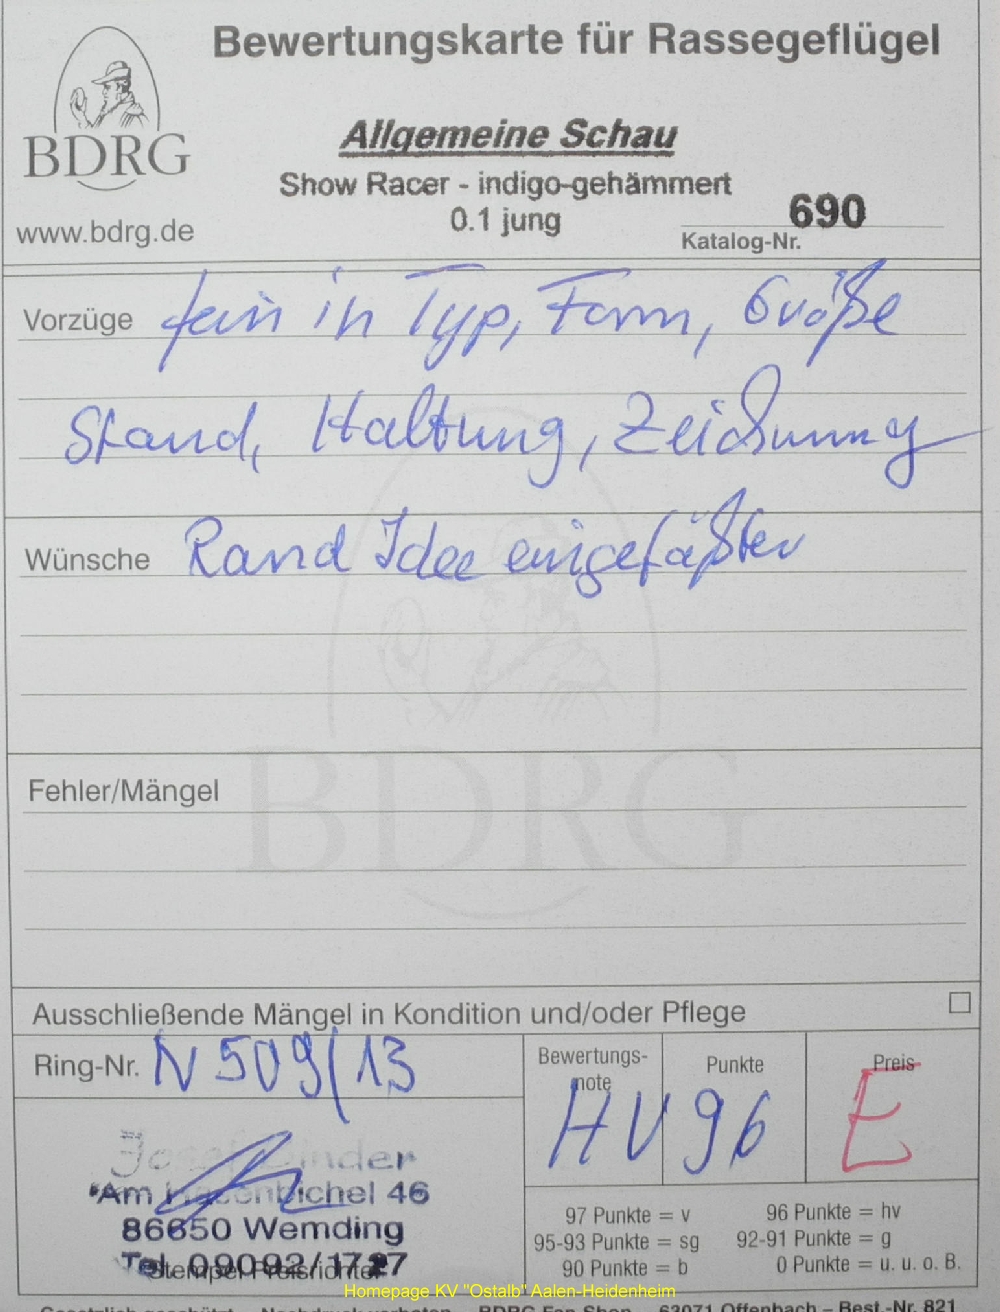 Bewertungskarte für Rassegeflügel
BDRG
www.bdrg.de
Allgemeine Schau
Show Racer - indigo-gehämmert
0.1 jung
690
Katalog-Nr.
Vorzüge fein in Typ, Form, Größe
Stand, Haltung, Zeichnung
Wünsche Rand Idee eingefaßter
BDRG
Fehler/Mängel
Ausschließende Mängel in Kondition und/oder Pflege
Ring-Nr. N 509/13
Bewertungs-note HV
Punkte 96
Preis E
Josef
Am 46
86650 Wemding
Tel. 09092/1727
Stempel Preisrichter
97 Punkte = v 96 Punkte = hv
95-93 Punkte = sg 92-91 Punkte = g
90 Punkte = b 0 Punkte = u. u. o. B.
Homepage KV "Ostalb" Aalen-Heidenheim
63071 Offenbach – Best.-Nr. 821